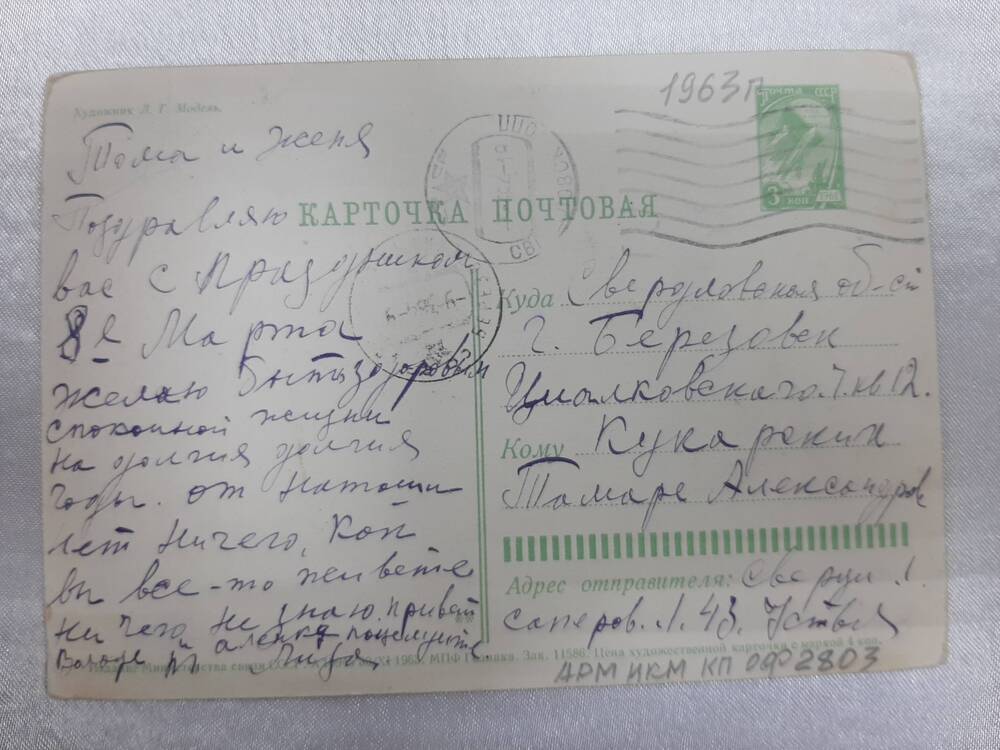 1963 г
Художник Л. Г. Модель.
Почта СССР
3 коп
Тома и Женя
КАРТОЧКА ПОЧТОВАЯ
Поздравляю
вас с праздником
8е Марта
желаю быть здоровым
спокойной жизни
на долгия долгия
годы. от Наташи
лет ничего, Как
вы все-то живете
ни чего не знаю. привет
Володе и Аленке поцелуйте
Куда Свердловская об-ст
г. Березовск
Циалковского. 7. кв 12.
Кому Кукарских
Тамаре Александров
Адрес отправителя: Свердл. 1.
саперов. 1. 43.
Министерства связи СССР XI 1963. МПФ Гознака. Зак. 11586. Цена художественной карточки с маркой 4 коп.
АРМ ИКМ КП ОФ 2803